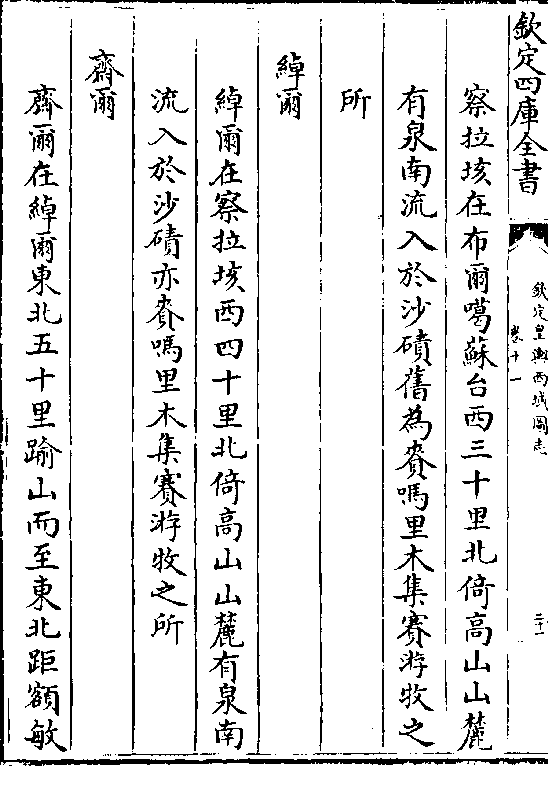 欽定四庫全書
欽定皇輿西域圖志
卷十一
二十一
察拉垓在布爾噶蘇台西三十里北倚高山山麓
有泉南流入於沙磧舊為賚嗎里木集賽游牧之
所
綽爾
綽爾在察拉垓西四十里北倚高山山麓有泉南
流入於沙磧亦賚嗎里木集賽游牧之所
齋爾
齋爾在綽爾東北五十里踰山而至東北距額敏